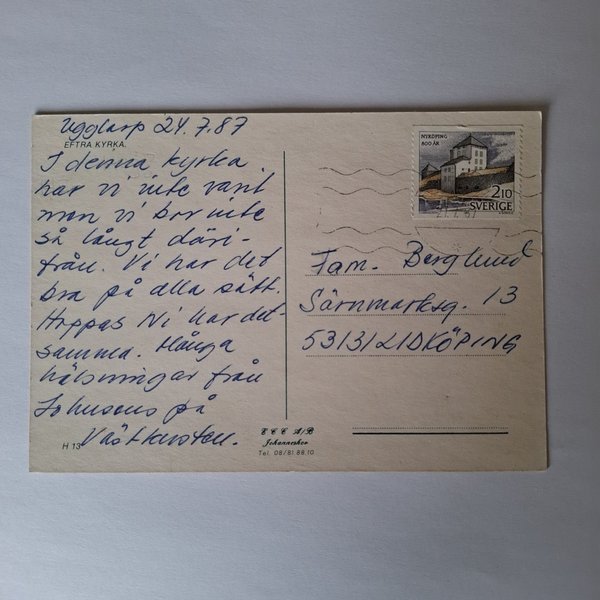 Ugglarp 24.7.87
EFTRA KYRKA.
I denna kyrka
har vi inte varit
men vi bor inte
så långt däri-
från. Vi har det
bra på alla sätt.
Hoppas Ni har det-
samma. Många
hälsningar från
Johnsons på
Västkusten.
H 13
NYKÖPING
800 ÅR
2.10
SVERIGE
Fam. Berglund
Särnmarksg. 13
53131 LIDKÖPING
E C C A/B
Johanneshov
Tel. 08/81 88 10